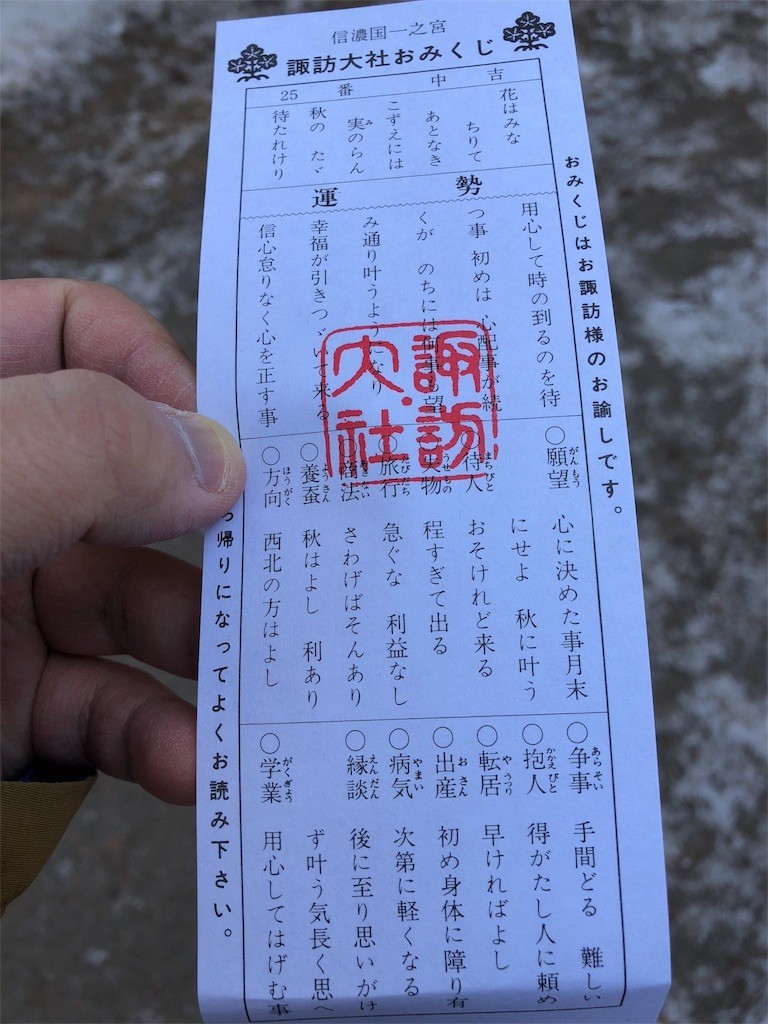 信濃国一之宮
諏訪大社おみくじ
25 番 中 吉
花はみな
ちりて
あとなき
こずえには
実のらん
み
秋の たゞ
待たれけり
運 勢
用心して時の到るのを待
つ事 初めは 心配事が続
くが のちには何事も望
み通り叶うようになり
幸福が引きつゞいて来る
信心怠りなく心を正す事
諏訪大社
○願望 がんもう 心に決めた事月末
にせよ 秋に叶う
○待人 まちびと おそけれど来る
○失物 うせもの 程すぎて出る
○旅行 たびだち 急ぐな 利益なし
○商法 あきない さわげばそんあり
○養蚕 ようさん 秋はよし 利あり
○方向 ほうがく 西北の方はよし
○争事 あらそい 手間どる 難しい
○抱人 かかえびと 得がたし人に頼め
○転居 やうつり 早ければよし
○出産 おさん 初め身体に障り有
○病気 やまい 次第に軽くなる
○縁談 えんだん 後に至り思いがけ
ず叶う気長く思へ
○学業 がくぎょう 用心してはげむ事
おみくじはお諏訪様のお諭しです。
帰りになってよくお読み下さい。